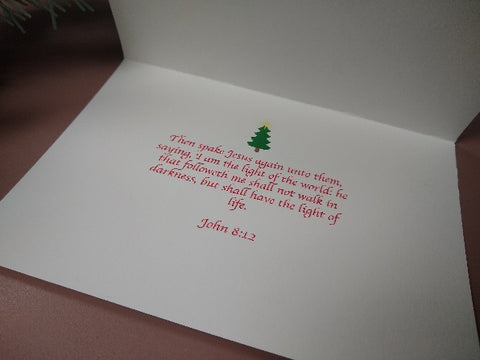 Then spake Jesus again unto them,
saying, 'I am the light of the world: he
that followeth me shall not walk in
darkness, but shall have the light of
life.
John 8:12